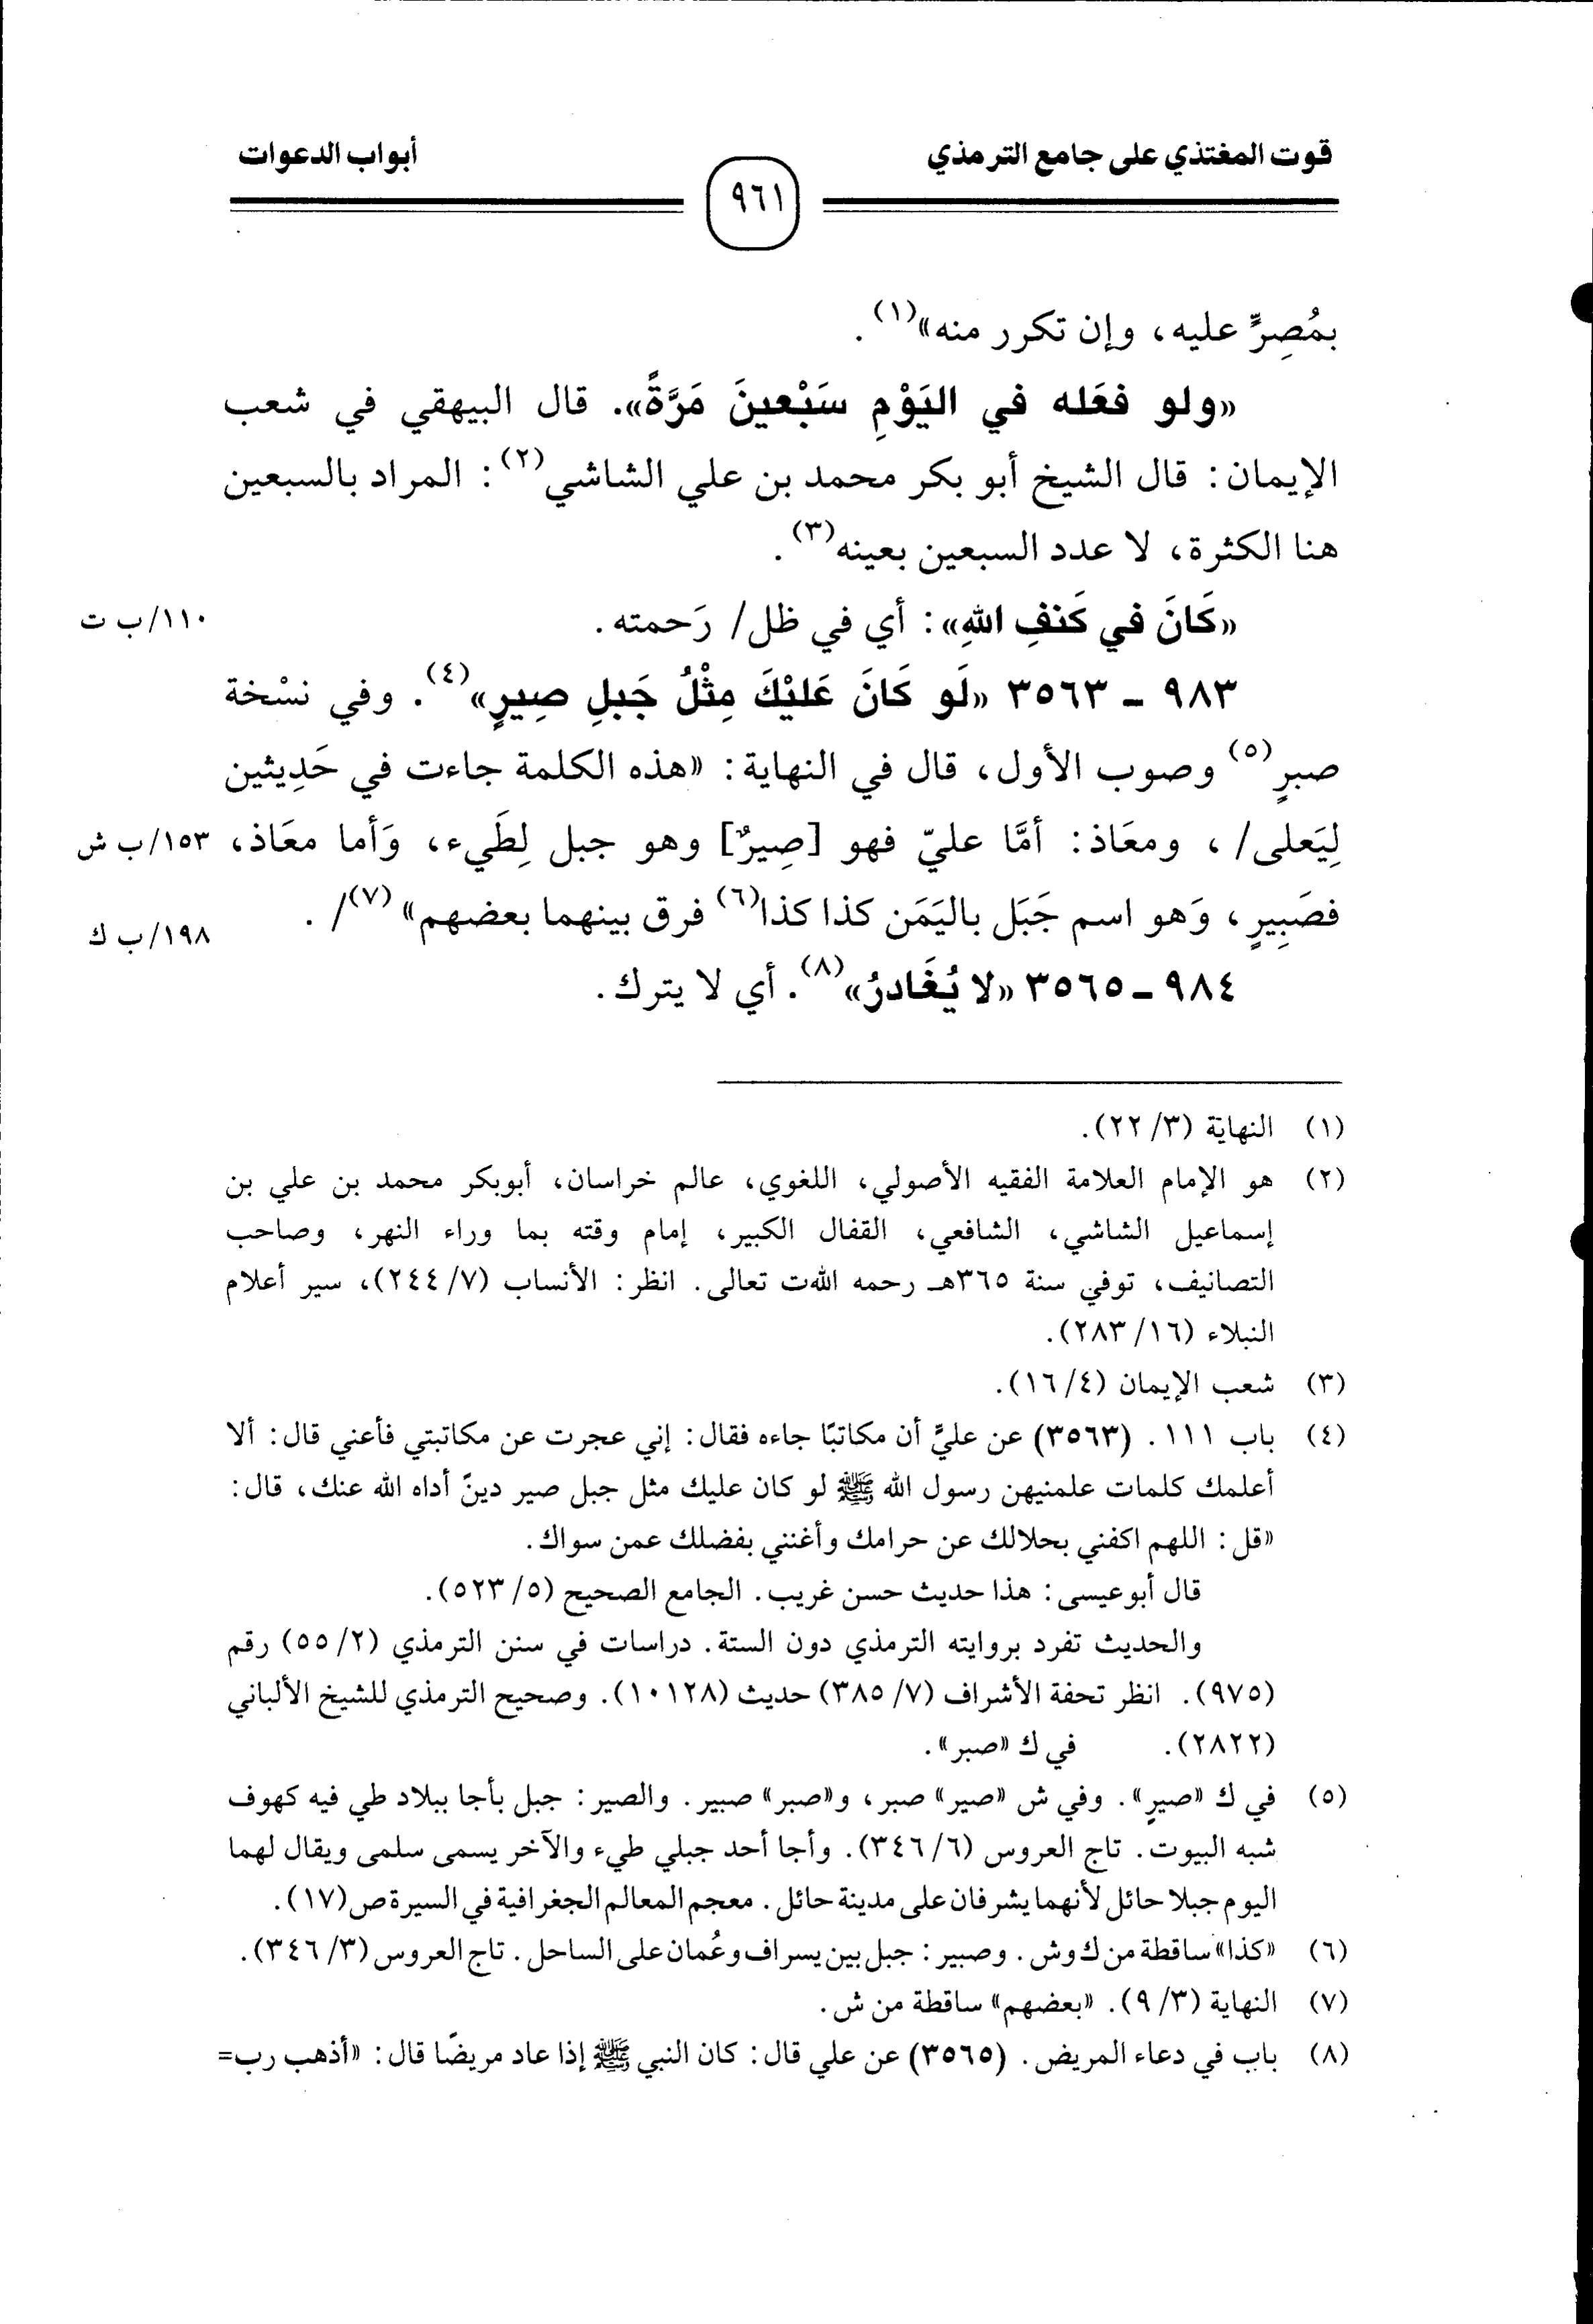 قوت المغتذي على جامع الترمذي
٩٦١
أبواب الدعوات
بمُصِرٍّ عليه، وإن تكرر منه»(١).
«ولو فعَله في اليَوْمِ سَبْعينَ مَرَّةً». قال البيهقي في شعب
الإيمان: قال الشيخ أبو بكر محمد بن علي الشاشي(٢): المراد بالسبعين
هنا الكثرة، لا عدد السبعين بعينه(٣).
«كَانَ في كَنفِ اللهِ»: أي في ظل/ رَحمته.
١١٠/ب ت
٩٨٣ ـ ٣٥٦٣ «لَو كَانَ عَليْكَ مِثْلُ جَبلِ صِيرٍ»(٤). وفي نسْخة
صبرٍ(٥) وصوب الأول، قال في النهاية: «هذه الكلمة جاءت في حَدِيثين
لِيَعلى/، ومعَاذ: أمَّا عليّ فهو [صِيرٌ] وهو جبل لِطَيء، وَأما معَاذ،
١٥٣/ب ش
فصَبِيرٍ، وَهو اسم جَبَل باليَمَن كذا كذا(٦) فرق بينهما بعضهم»(٧)/.
١٩٨/ب ك
٩٨٤ ـ ٣٥٦٥ «لا يُغَادرُ»(٨). أي لا يترك.
(١) النهاية (٣/ ٢٢).
(٢) هو الإمام العلامة الفقيه الأصولي، اللغوي، عالم خراسان، أبوبكر محمد بن علي بن
إسماعيل الشاشي، الشافعي، القفال الكبير، إمام وقته بما وراء النهر، وصاحب
التصانيف، توفي سنة ٣٦٥هـ رحمه اللهت تعالى. انظر: الأنساب (٧/ ٢٤٤)، سير أعلام
النبلاء (١٦/ ٢٨٣).
(٣) شعب الإيمان (٤/ ١٦).
(٤) باب ١١١. (٣٥٦٣) عن عليٍّ أن مكاتبًا جاءه فقال: إني عجرت عن مكاتبتي فأعني قال: ألا
أعلمك كلمات علمنيهن رسول الله ﷺ لو كان عليك مثل جبل صير دينً أداه الله عنك، قال:
«قل: اللهم اكفني بحلالك عن حرامك وأغنني بفضلك عمن سواك.
قال أبوعيسى: هذا حديث حسن غريب. الجامع الصحيح (٥/ ٥٢٣).
والحديث تفرد بروايته الترمذي دون الستة. دراسات في سنن الترمذي (٢/ ٥٥) رقم
(٩٧٥). انظر تحفة الأشراف (٧/ ٣٨٥) حديث (١٠١٢٨). وصحيح الترمذي للشيخ الألباني
(٢٨٢٢). في ك «صبر».
(٥) في ك «صيرٍ». وفي ش «صير» صبر، و«صبر» صبير. والصير: جبل بأجا ببلاد طي فيه كهوف
شبه البيوت. تاج العروس (٦/ ٣٤٦). وأجا أحد جبلي طيء والآخر يسمى سلمى ويقال لهما
اليوم جبلا حائل لأنهما يشرفان على مدينة حائل. معجم المعالم الجغرافية في السيرة ص(١٧).
(٦) «كذا» ساقطة من ك وش. وصبير: جبل بين يسراف وعُمان على الساحل. تاج العروس (٣/ ٣٤٦).
(٧) النهاية (٣/ ٩). «بعضهم» ساقطة من ش.
(٨) باب في دعاء المريض. (٣٥٦٥) عن علي قال: كان النبي ﷺ إذا عاد مريضًا قال: «أذهب رب=